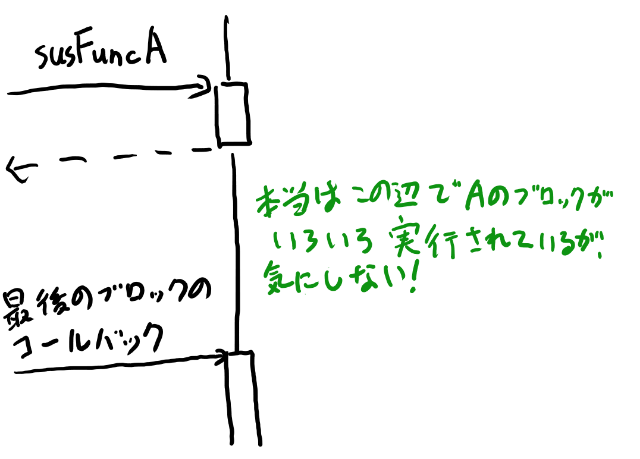 susFuncA
本当はこの辺でAのブロックが
いろいろ実行されているが、
気にしない!
最後のブロックの
コールバック